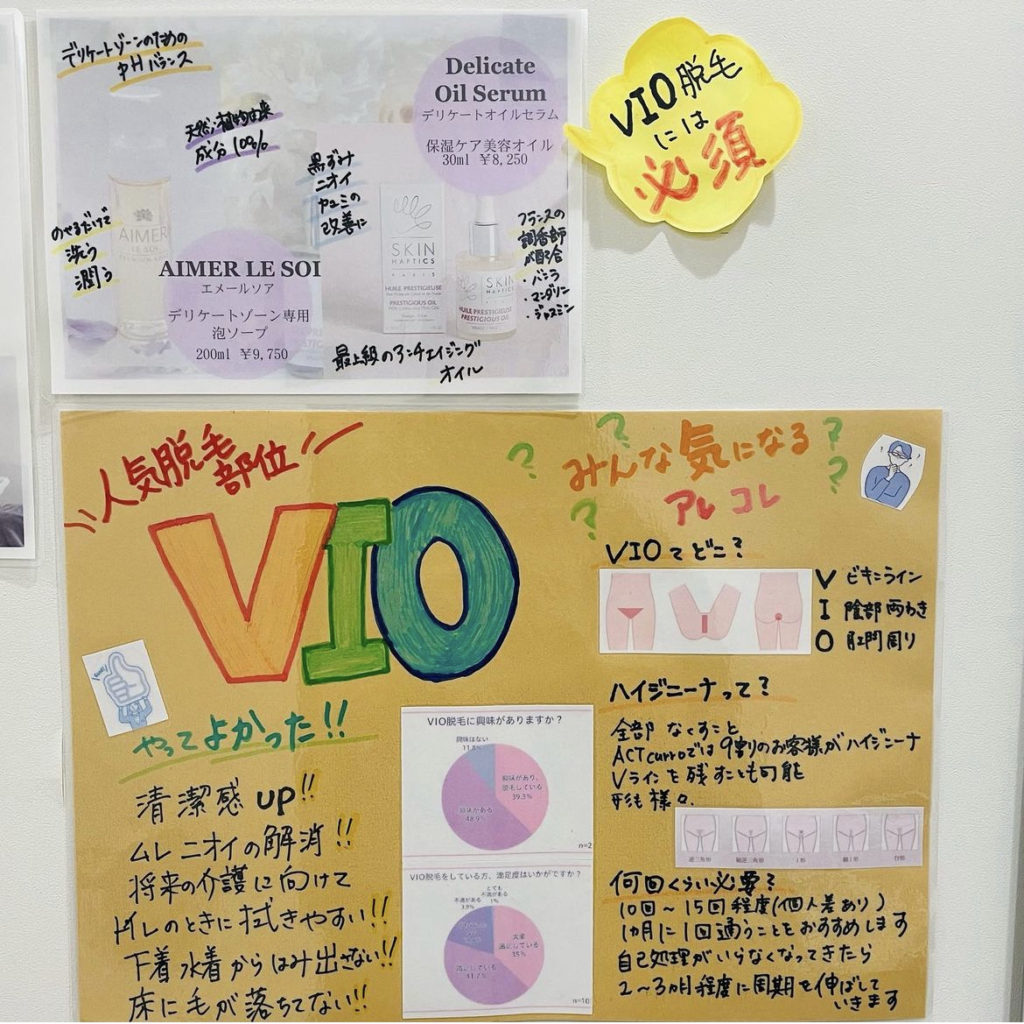 デリケートゾーンのための
pHバランス
天然・植物由来
成分100%
のせるだけで
洗う
潤う
AIMER
LE SOI
AIMER LE SOI
エメールソア
デリケートゾーン専用
泡ソープ
200ml ¥9,750
Delicate
Oil Serum
デリケートオイルセラム
保湿ケア美容オイル
30ml ¥8,250
黒ずみ
ニオイ
カユミの
改善に
SKIN
HAPTICS
PARIS
HUILE PRESTIGIEUSE
PRESTIGIOUS OIL
SKIN
HAPTICS
HUILE PRESTIGIEUSE
PRESTIGIOUS OIL
フランスの
調香師
が配合
・バニラ
・マンダリン
・ジャスミン
最上級のアンチエイジング
オイル
VIO脱毛
には
必須
人気脱毛
部位
VIO
やってよかった!!
清潔感UP!!
ムレニオイの解消!!
将来の介護に向けて
トイレのときに拭きやすい!!
下着水着からはみ出さない!!
床に毛が落ちてない!!
VIO脱毛に興味がありますか？
興味はない
11.8%
興味があり、
脱毛している
39.3%
興味がある
48.9%
VIO脱毛をしている方、満足度はいかがですか？
とても
不満がある
1%
不満がある
3.9%
大変
満足している
35%
満足している
みんな気になる
アレコレ
? ? ? ? ?
VIOてどこ?
V ビキニライン
I 陰部両わき
O 肛門周り
ハイジニーナって?
全部なくすこと
ACTcurroでは9割のお客様がハイジニーナ
Vラインを残すことも可能
形も様々。
逆三角形
I形
何回くらい必要?
10回～15回程度(個人差あり)
1カ月に1回通うことをおすすめします
自己処理がいらなくなってきたら
2～3カ月程度に周期を伸ばして
いきます